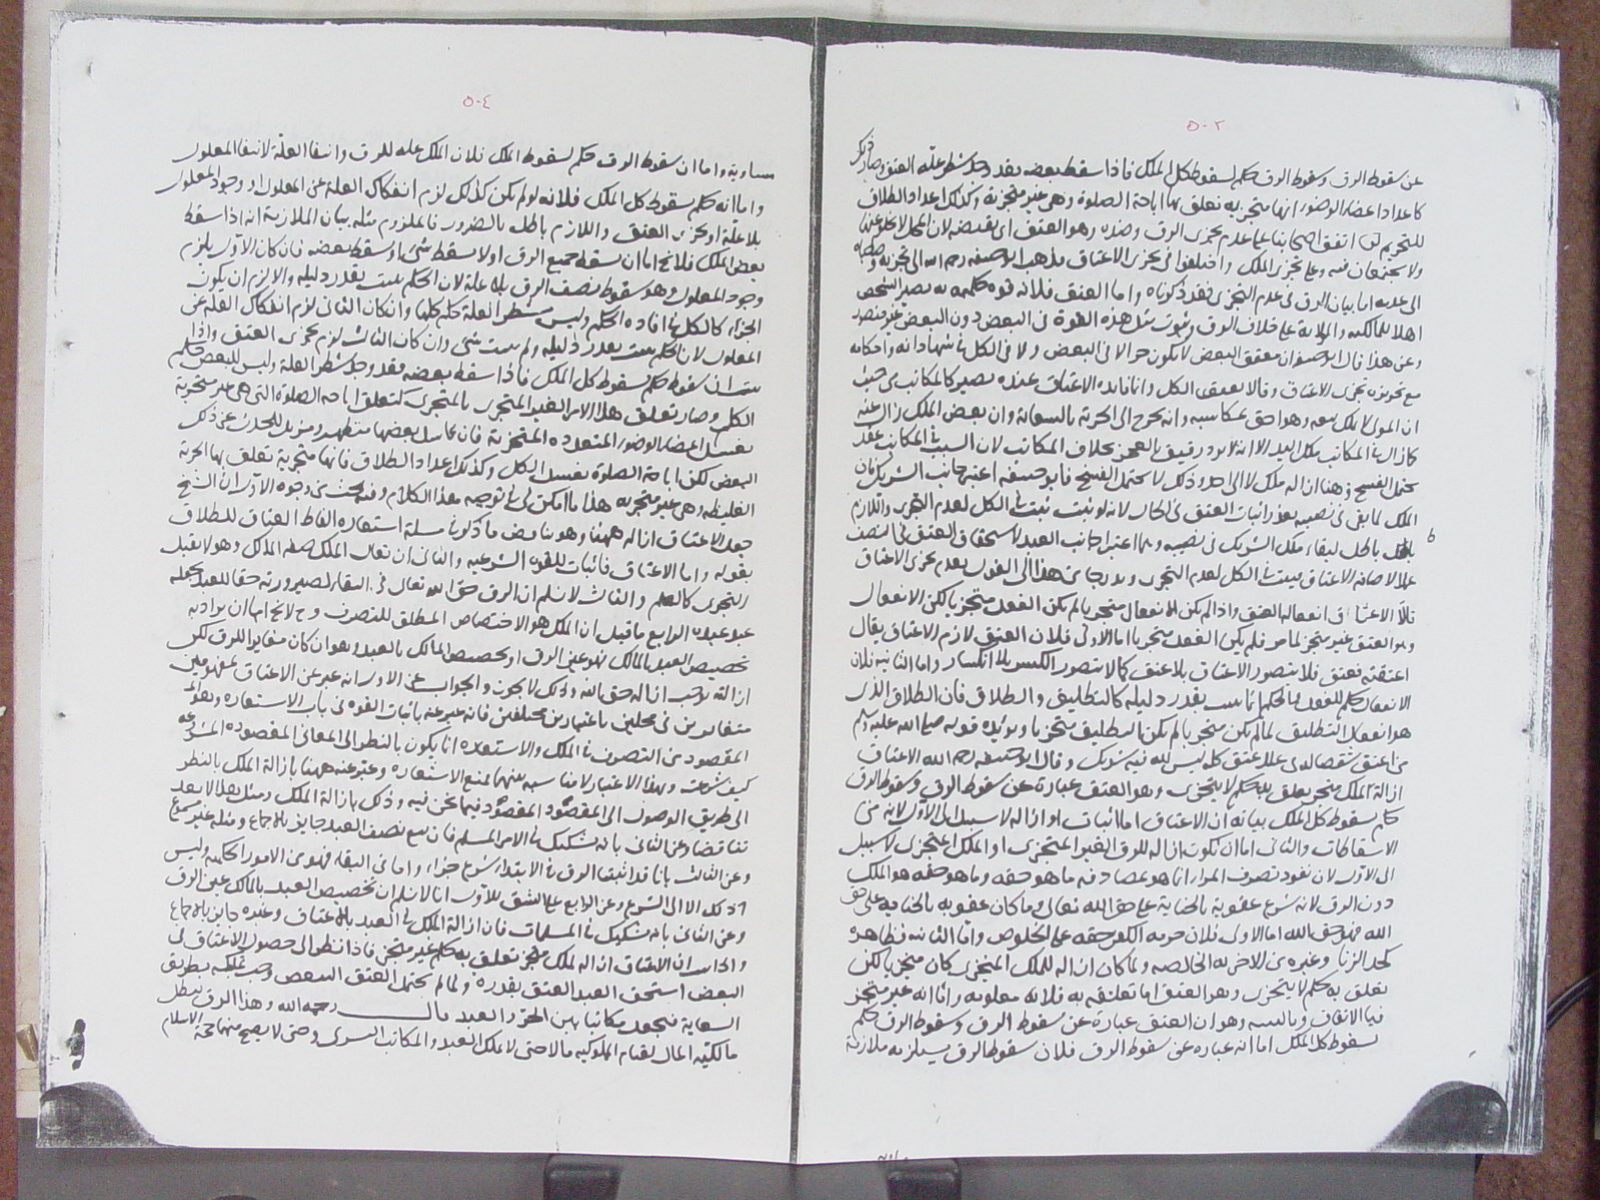 ٥٠٢
عن سقوط الرق وسقوط الرق حكم لسقوط كل الملك فاذا سقط بعضه فقد وجد شطر علة العتق وصار ذلك
كاعداد اعضاء الوضوء انها متجزية تعلق بها اباحة الصلوة وهى غير متجزية وكذلك اعداد الطلاق
للتحريم اتفق اصحابنا على عدم تجزى الرق وضده وهو العتق لان المحل لا يخلو عنهما
ولا يجتمعان فيه وعلى تجزى الملك واختلفوا فى تجزى الاعتاق فذهب ابو حنيفة رحمه الله الى تجزيه وصاحباه
الى عدمه اما بيان الرق فى عدم التجزى فقد ذكرناه واما العتق فلانه قوة حكمية به يصير الشخص
اهلا للمالكية والولاية على خلاف الرق وثبوت مثل هذه القوة فى البعض دون البعض غير متصور
وعن هذا قال ابو حنيفة ان معتق البعض لا يكون حرا لا فى البعض ولا فى الكل فى شهاداته واحكامه
مع تجويزه تجزى الاعتاق وقالا يعتق الكل وانما فائدة الاعتاق عنده يصير كالمكاتب من حيث
ان المولى لا يملك بيعه وهو احق بمكاسبه وانه يخرج الى الحرية بالسعاية وان بعض الملك زال عنه
كما زال فى المكاتب ملك اليد الا انه لا يرد رقيقا بالعجز بخلاف المكاتب لان السبب فى المكاتب عقد
يحتمل الفسخ وهنا ازالة ملك لا الى احد وذلك لا يحتمل الفسخ فابو حنيفة اعتبر جانب الشريك فان
الملك لما بقى فى نصيبه تعذر اثبات العتق فى الحال لانه لو ثبت ثبت فى الكل لعدم التجزى واللازم
باطل لبقاء ملك الشريك فى نصيبه وهما اعتبرا جانب العبد لاستحقاق العتق فى النصف
عملا لاضافة الاعتاق فيثبت فى الكل لعدم التجزى هذا الى القول بعدم تجزى الاعتاق
قالا الاعتاق انفعاله العتق واذا لم يكن الانفعال متجزيا لم يكن الفعل متجزيا لكن الانفعال
وهو العتق غير متجز لما مر فلم يكن الفعل متجزيا اما الاولى فلان العتق لازم الاعتاق يقال
اعتقته فعتق فلا يتصور الاعتاق بلا عتق كما لا يتصور الكسر بلا انكسار واما الثانية فلان
الانفعال حكم للفعل والحكم انما يثبت بقدر دليله كالتطليق والطلاق فان الطلاق الذى
هو انفعال التطليق لما لم يكن متجزيا لم يكن التطليق متجزيا ويؤيده قوله صلى الله عليه وسلم
من اعتق شقصا له فى عبد عتق كله ليس لله فيه شريك وقال ابو حنيفة رحمه الله الاعتاق
ازالة الملك متجز تعلق به حكم لا يتجزى وهو العتق عبارة عن سقوط الرق وسقوط الرق
حكم سقوط كل الملك بيانه ان الاعتاق اما اثبات او ازالة لا سبيل الى الاول لانه من
الاسقاطات والثانى اما ان يكون ازالة للرق الغير المتجزى او الملك المتجزى لا سبيل
الى الاول لان نفوذ تصرف المرء انما هو بمصادفة ما هو حقه وما هو حقه هو الملك
دون الرق لانه شرع عقوبة بالجناية على حق الله تعالى وما كان عقوبة بالجناية على حق
الله فهو حق الله اما الاولى فلان حرمة الكفر حقه على الخلوص واما الثانية فظاهر
كحد الزنا وغيره من الاجزية الخالصة ولما كان ازالة للملك المتجزى كان متجزيا لكن
تعلق به حكم لا يتجزى وهو العتق اما تعلقه به فلانه معلوله واما انه غير متجز
فبالاتفاق وهو ان العتق عبارة عن سقوط الرق وسقوط الرق حكم
لسقوط كل الملك اما انه عبارة عن سقوط الرق فلان سقوط الرق يستلزمه ملازمة
٥٠٤
مساوية واما ان سقوط الرق حكم لسقوط الملك فلان الملك علة للرق وانتفاء العلة لانتفاء المعلول
واما انه حكم سقوط كل الملك فلانه لو لم يكن كذلك لزم انفكاك العلة عن المعلول او وجود المعلول
بلا علة او تجزى العتق واللازم باطل بالضرورة فالملزوم مثله بيان الملازمة انه اذا سقط
بعض الملك فلا يخ اما ان سقط جميع الرق او لا يسقط شئ او سقط بعضه فان كان الاول يلزم
وجود المعلول وهو سقوط نصف الرق بلا علة لان الحكم يثبت بقدر دليله والا لزم ان يكون
الجزء كالكل فى افادة الحكم وليس شطر العلة حكم كلها وان كان الثانى لزم انفكاك العلة عن
المعلول لان الحكم يثبت بقدر دليله ولم يثبت شئ وان كان الثالث لزم تجزى العتق واذا
ثبت ان سقوط حكم لسقوط كل الملك فاذا سقط بعضه فقد وجد شطر العلة وليس للبعض حكم
الكل وصار تعلق هذا الامر الغير المتجزى بالمتجزى كتعلق اباحة الصلوة التى هى غير متجزية
بغسل اعضاء الوضوء المتعددة المتجزية فان غاسل بعضها متطهر ومزيل للحدث عن ذلك
البعض لكن اباحة الصلوة بغسل الكل وكذلك اعداد الطلاق فانها متجزية تعلق بها الحرمة
الغليظة وهى غير متجزية هذا ما امكن لى فى توجيه هذا الكلام وفيه بحث من وجوه الاول ان الشيخ
جعل الاعتاق ازالة ههنا وهو يناقض ما ذكر فى مسئلة استعارة الفاظ العتاق للطلاق
بقوله واما الاعتاق فاثبات للقوة الشرعية والثانى ان يقال الملك صفة المالك وهو لا يقبل
التجزى كالعلم والثالث لا نسلم ان الرق حق الله تعالى فى البقاء لصيرورته حقا للعبد
الرابع ما قيل ان الملك هو الاختصاص المطلق للتصرف وح لا يخ اما ان يراد به
تخصيص العبد بالمالك فهو عين الرق او تخصيص المالك بالعبد وهو ان كان مغايرا للرق لكن
ازالته توجب ازالة حق الله وذلك لا يجوز والجواب عن الاول انه عبر عن الاعتاق بمفهومين
متغايرين فى محلين باعتبارين مختلفين فانه عبر عنه باثبات القوة فى باب الاستعارة
المقصود من التصرف فى الملك والاستعارة انما يكون بالنظر الى المعانى المقصودة المشروعة
كيف شرعت وبهذا الاعتبار لا مناسبة بينهما لمنع الاستعارة وعبر عنه ههنا بازالة الملك بالنظر
الى طريق الوصول الى المقصود المقصود فيما نحن فيه وذلك بازالة الملك ومثل هذا لا يعد
تناقضا وعن الثانى بانه تشكيك فى الامر المسلم فان بيع نصف العبد جايز بالاجماع ومثله غير مسموع
وعن الثالث بانا قد اثبتنا الرق فى الابتداء شرع جزاء واما فى البقاء فهو من الامور الحكمية وليس
ذلك الا الى الشرع وعن الرابع على الشق الاول انا لا نسلم ان تخصيص العبد بالمالك عين الرق
وعن الثانى بانه تشكيك فى المسلمات فان ازالة الملك فى العبد بالاعتاق وغيره جايز بالاجماع
والحاصل ان الاعتاق ازالة لملك متجز تعلق به حكم غير متجز فاذا نظر الى حصول الاعتاق فى
البعض استحق العبد العتق بقدره ولما لم يحتمل العتق التبعض وجب تكميله بطريق
السعاية فيجعل مكاتبا بين الحر والعبد قال رحمه الله وهذا الرق يبطل
مالكية المال لقيام المملوكية مالا حتى لا يملك العبد والمكاتب التسرى وحتى لا يصح منهما حجة الاسلام